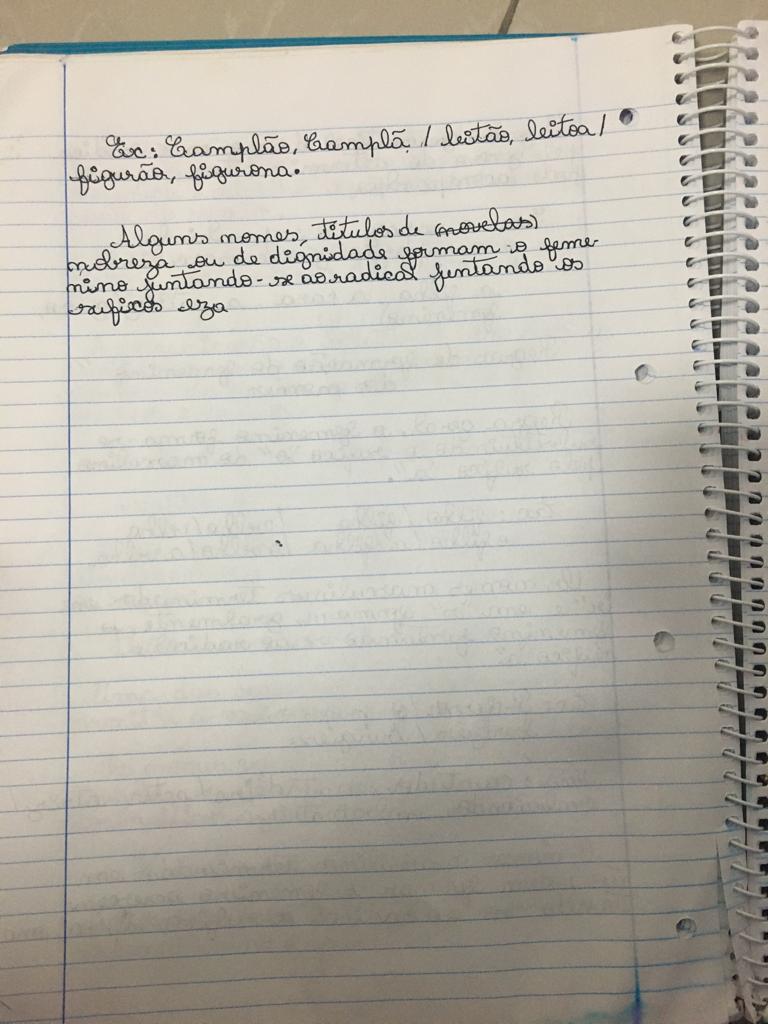 Ex: Camplão, Camplã / leitão, leitoa /
figurão, figurona.
Alguns nomes, titulos de (novelas)
nobreza ou de dignidade formam o feme-
nino juntando-se ao radical juntando os
sufixos eza